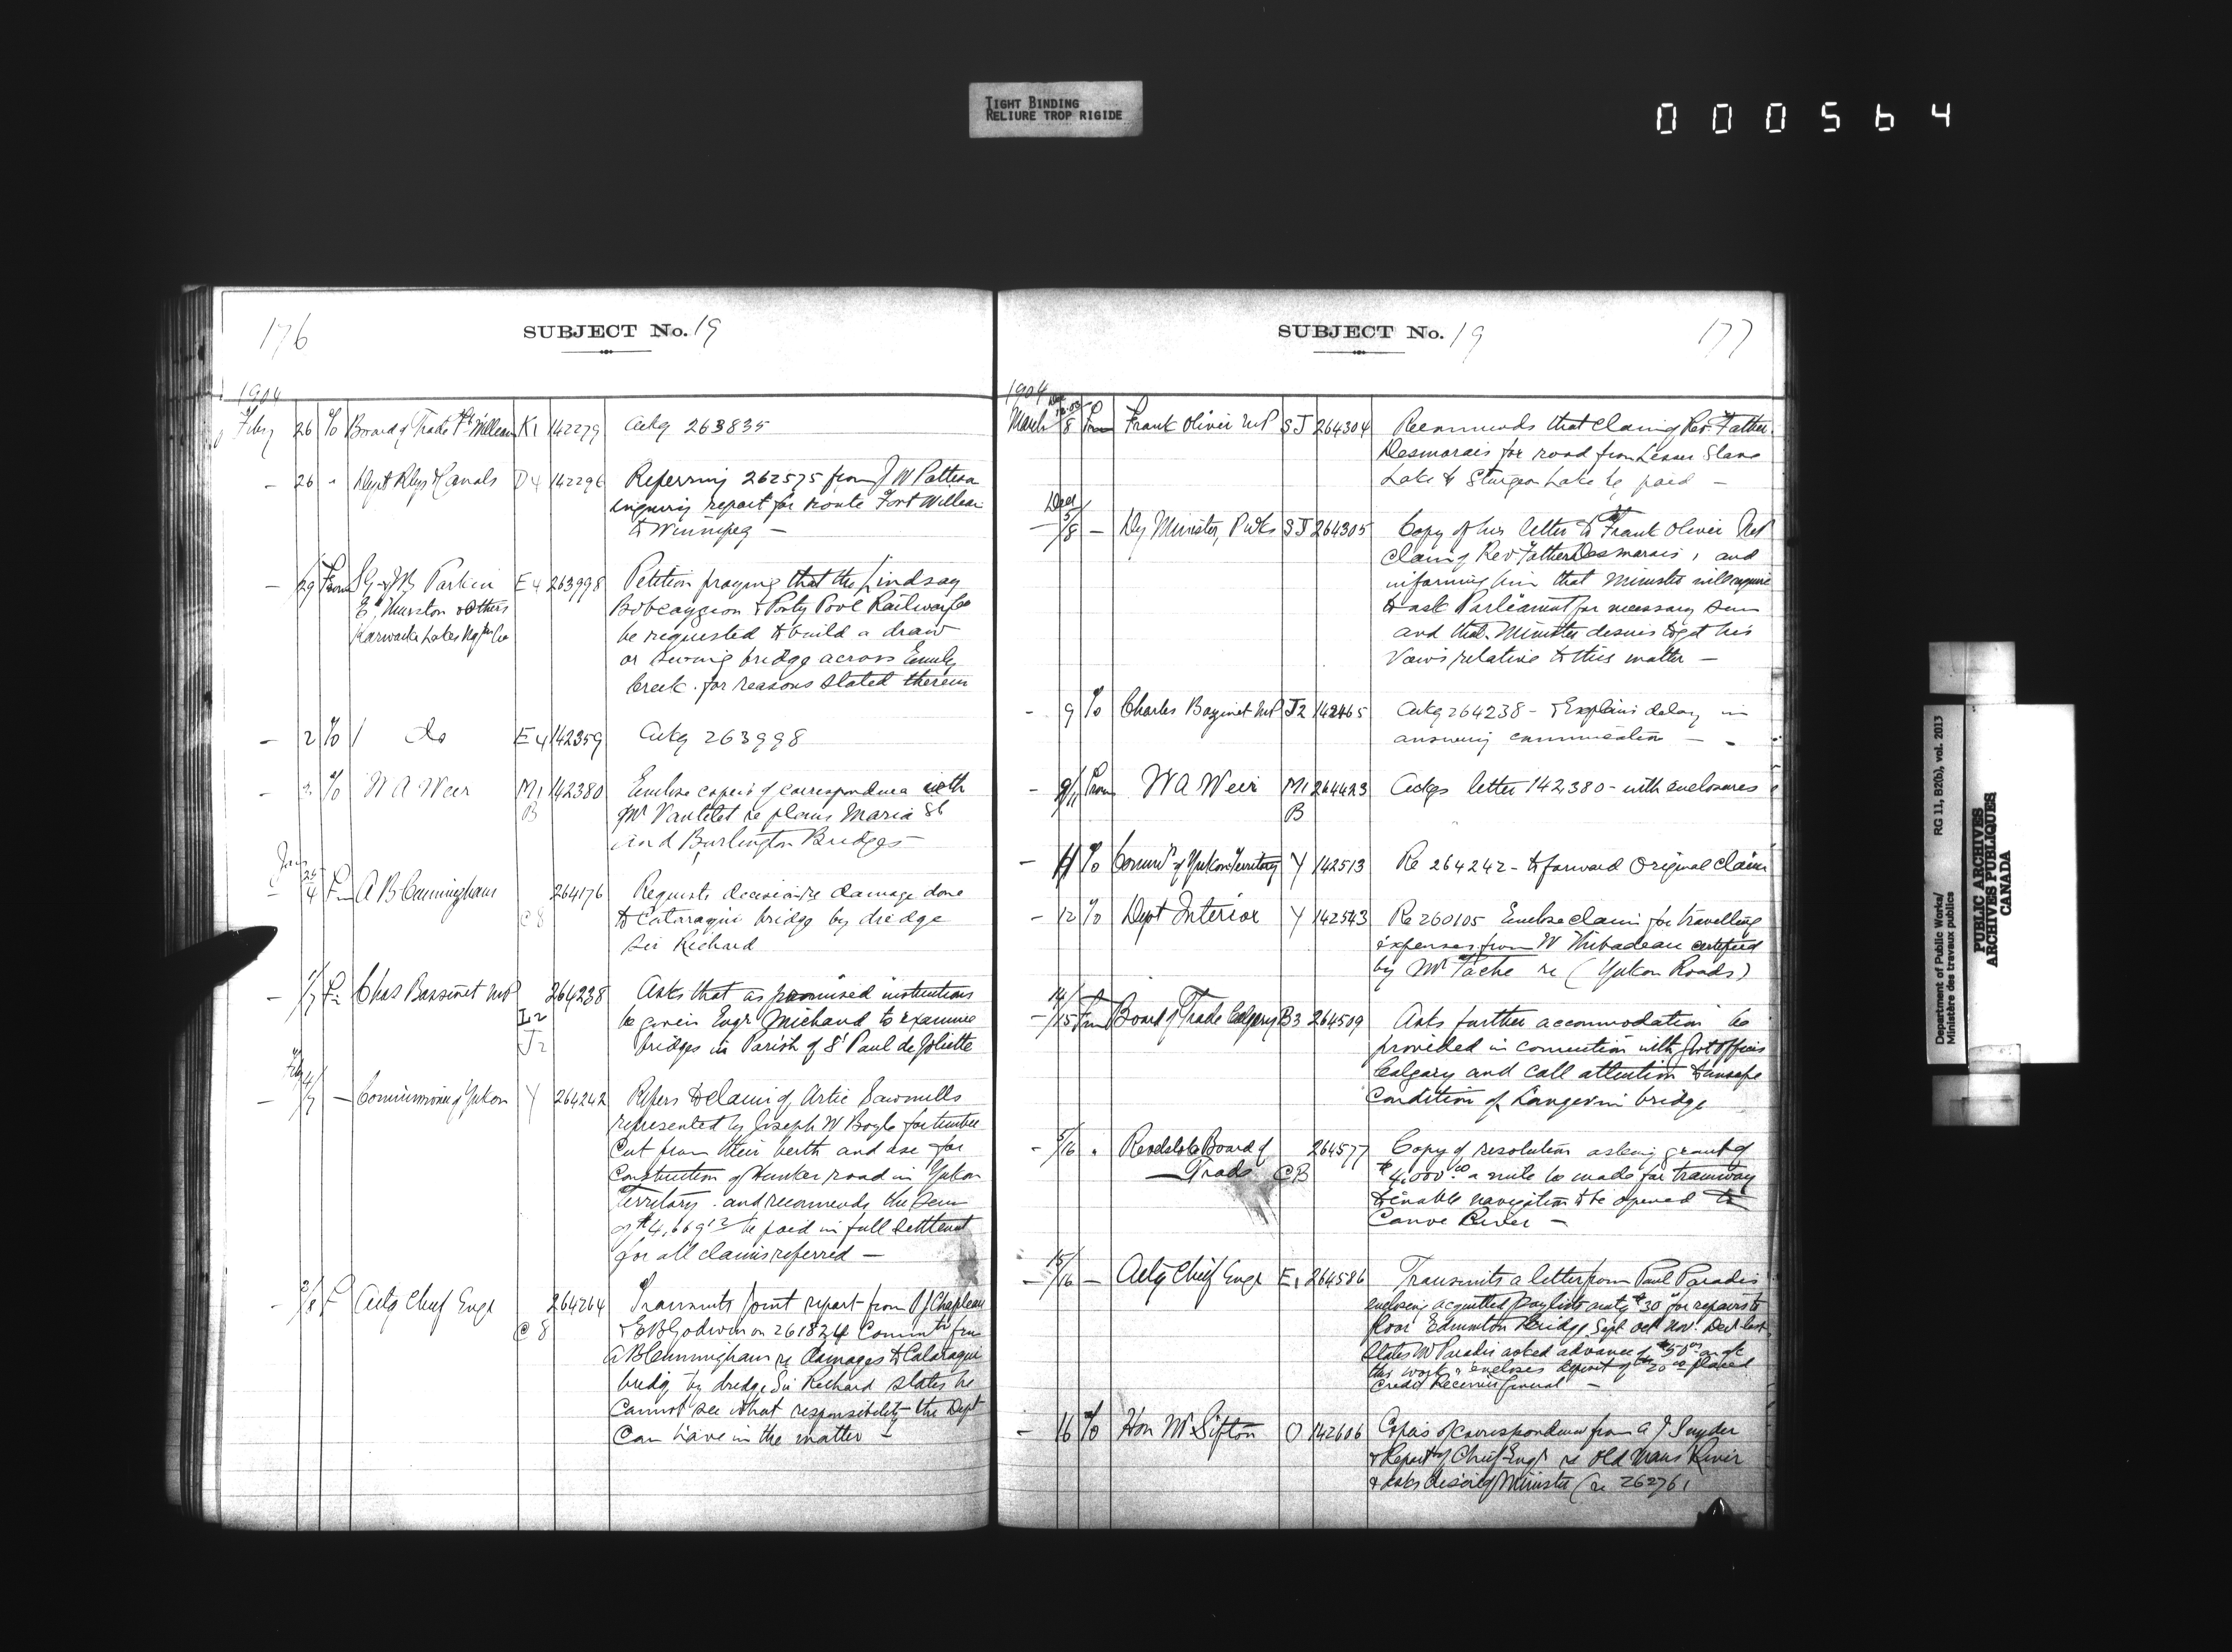 TIGHT BINDING
RELIURE TROP RIGIDE
000564
176
SUBJECT No. 19
1904
Feby 26 To Board of Trade Ft William K1 142279 Ackg 263835
— 26 " Dept Rlys & Canals D4 142296 Referring 262575 from J W Patterson
enquiry report for route Fort William
to Winnipeg —
— 29 From Parkin E4 263998 Petition praying that the Lindsay
E. Thurston & others Bobcaygeon & Ponty Pool Railway Co
Lakes Co be requested to build a draw
or swing bridge across Emily
Creek. for reasons stated therein
— 2 To do E4 142359 Ackg 263998
— 2 To W A Weir M1 142380 Enclose copies of correspondence with
B Mr Vautelet re plans Maria St
and Burlington Bridges —
Jany
— 25/4 Fm A B Cunningham 264176 Requests decision re damage done
C8 to Cataraqui bridge by dredge
Sir Richard
— 1/7 Fm Chas Bassinet MP 264238 Asks that as promised instructions
L2 be given Engr Michaud to examine
J2 bridges in Parish of St Paul de Joliette
Feby
— 4/7 — Commissioner of Yukon Y 264242 Refers to claim of Artic Sawmills
represented by Joseph W Boyle for timber
cut from their berth and use for
Construction of Hunker road in Yukon
Territory. and recommends the sum
of $4,669.12 be paid in full settlement
for all claims referred —
— 2/8 F Actg Chief Engr 264264 Transmits joint report from J Chapleau
C8 & E B Godwin on 261824 Commn from
A B Cunningham re damages to Cataraqui
bridg by dredge Sir Richard states he
Cannot see what responsibility the Dept
Can have in the matter —
SUBJECT No. 19
177
1904
Dec
March 8 From Frank Oliver MP SJ 264304 Recommends that claim of Rev. Father
Desmarais for road from Lesser Slave
Lake to Sturgeon Lake be paid —
Decd
— 5/8 — Dy Minister, P Wks SJ 264305 Copy of his letter to Frank Oliver MP
claim of Rev Father Desmarais, and
informing him that Minister will require
to ask Parliament for necessary sum
and that Minister desires to get his
views relative to this matter —
— 9 To Charles Bazinet MP J2 142465 Ackg 264238 — & Explains delay in
answering communication —
— 9/11 From W A Weir M1 264423 Ackgs letter 142380 - with enclosures
B
— 11 To Commr of Yukon Territory Y 142513 Re 264242 - to forward Original claim
— 12 To Dept Interior Y 142543 Re 260105 Enclose claim for travelling
expenses from W Thibadeau certified
by Mr Tache re (Yukon Roads)
— 14/15 From Board of Trade Calgary B3 264509 Asks further accommodation be
provided in connection with Post Office
Calgary and call attention to unsafe
Condition of Langevin bridge
— 5/16 " Revelstoke Board of 264577 Copy of resolution asking grant of
— Trade CB $4,000.00 a mile be made for tramway
to enable navigation to be opened to
Canoe River —
— 15/16 — Actg Chief Engr E1 264586 Transmits a letter from Paul Paradis
enclosing acquitted paylists amtg $30 for repairs to
floor Edmonton Bridge Sept Oct Nov. Dec last.
States Mr Paradis asked advance of $50.00 on a/c
this work & encloses deposit of $20.00 placed
Credit Receiver General —
— 16 To Hon Mr Sifton O 142606 Copies of correspondence from A J Snyder
& Report of Chief Engr re Old Mans River
& asks desire of Minister (re 262761
Department of Public Works/ RG 11, B2(b), vol. 2013
Ministère des travaux publics
PUBLIC ARCHIVES
ARCHIVES PUBLIQUES
CANADA